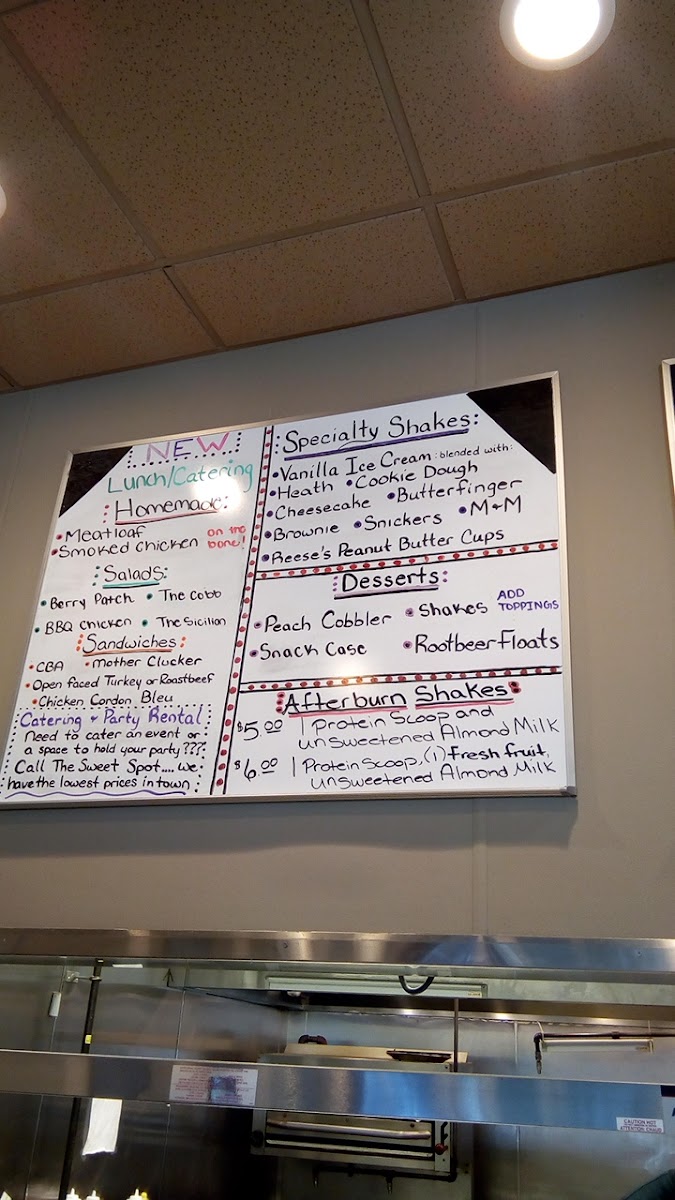 NEW
Lunch/Catering
Homemade:
• Meatloaf
• Smoked chicken on the bone!
Salads:
• Berry Patch • The Cobb
• BBQ Chicken • The Sicilian
Sandwiches
• CBA • Mother Clucker
• Open faced Turkey or Roastbeef
• Chicken Cordon Bleu
Catering + Party Rental
Need to cater an event or
a space to hold your party???
Call The Sweet Spot.... we
have the lowest prices in town
Specialty Shakes:
• Vanilla Ice Cream: blended with:
• Heath • Cookie Dough
• Cheesecake • Butterfinger
• Brownie • Snickers • M+M
• Reese's Peanut Butter Cups
Desserts:
• Peach Cobbler • Shakes ADD TOPPINGS
• Snack Case • Rootbeer Floats
Afterburn Shakes
$5.00 1 Protein Scoop and
unsweetened Almond Milk
$6.00 1 Protein Scoop, (1) Fresh fruit,
unsweetened Almond Milk
CAUTION HOT